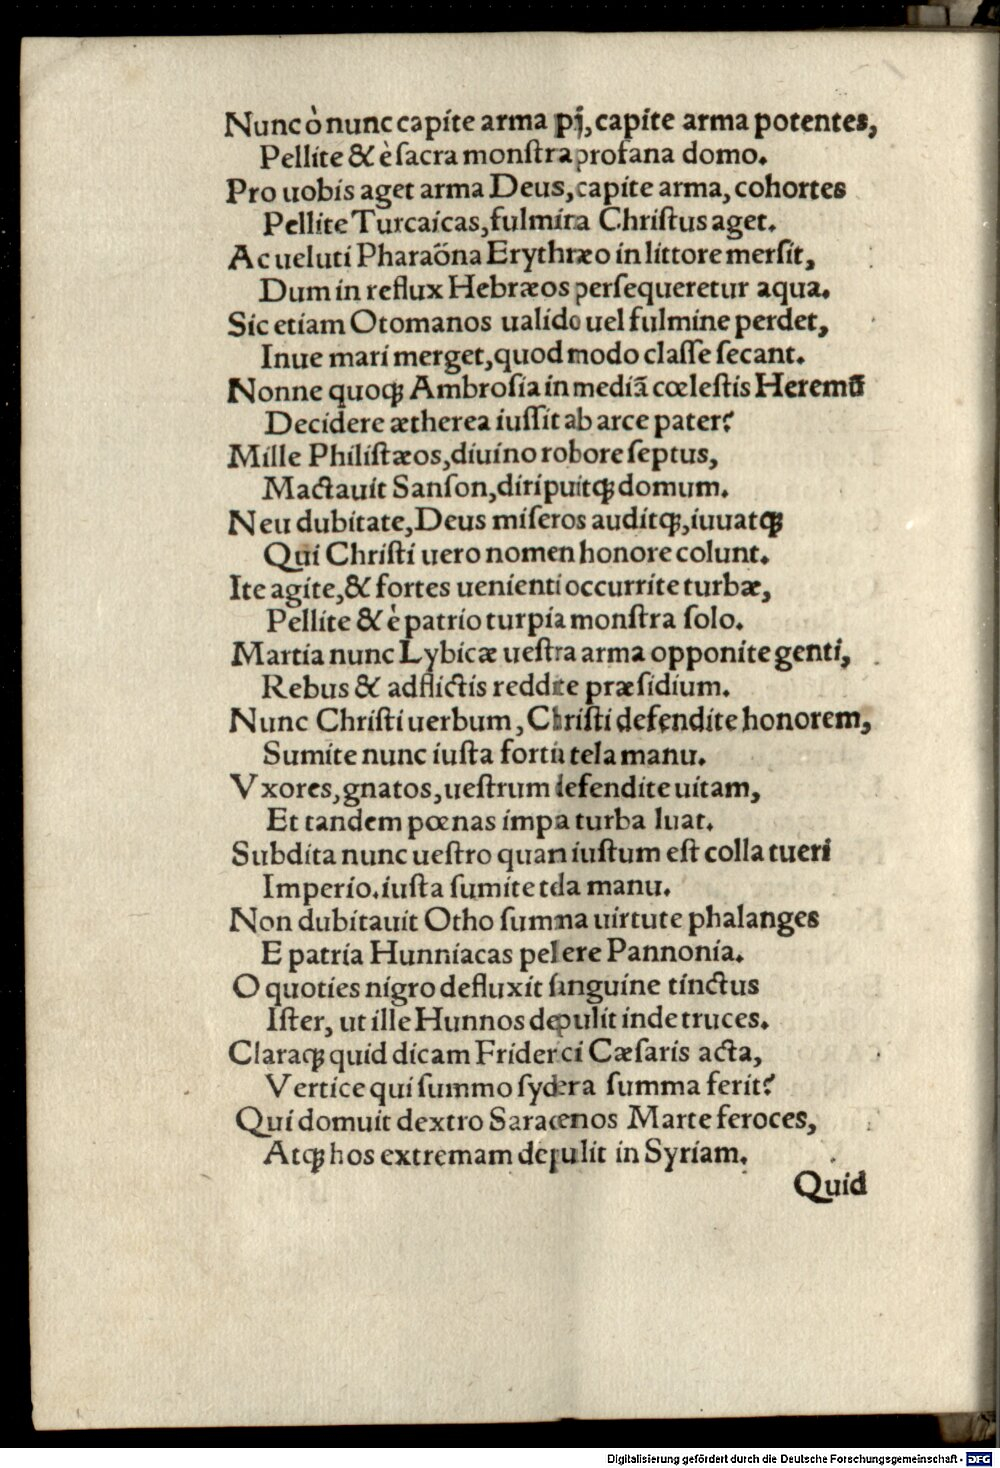 Nunc ò nunc capite arma pij, capite arma potentes,
Pellite & è sacra monstra profana domo.
Pro uobis aget arma Deus, capite arma, cohortes
Pellite Turcaicas, fulmina Christus aget.
Ac ueluti Pharaöna Erythræo in littore mersit,
Dum in reflux Hebræos persequeretur aqua.
Sic etiam Otomanos ualido uel fulmine perdet,
Inue mari merget, quod modo classe secant.
Nonne quoqꝫ Ambrosia in mediā cœlestis Heremū
Decidere ætherea iussit ab arce pater?
Mille Philistæos, diuino robore septus,
Mactauit Sanson, diripuitqꝫ domum.
Neu dubitate, Deus miseros auditqꝫ, iuuatqꝫ
Qui Christi uero nomen honore colunt.
Ite agite, & fortes uenienti occurrite turbæ,
Pellite & è patrio turpia monstra solo.
Martia nunc Lybicæ uestra arma opponite genti,
Rebus & adflictis reddite præsidium.
Nunc Christi uerbum, Christi defendite honorem,
Sumite nunc iusta forti tela manu.
Vxores, gnatos, uestrum defendite uitam,
Et tandem pœnas impa turba luat.
Subdita nunc uestro quan iustum est colla tueri
Imperio. iusta sumite tela manu.
Non dubitauit Otho summa uirtute phalanges
E patria Hunniacas pellere Pannonia.
O quoties nigro defluxit sanguine tinctus
Ister, ut ille Hunnos depulit inde truces.
Claraqꝫ quid dicam Friderici Cæsaris acta,
Vertice qui summo sydera summa ferit?
Qui domuit dextro Saracenos Marte feroces,
Atqꝫ hos extremam depulit in Syriam.
Quid
Digitalisierung gefördert durch die Deutsche Forschungsgemeinschaft - DFG